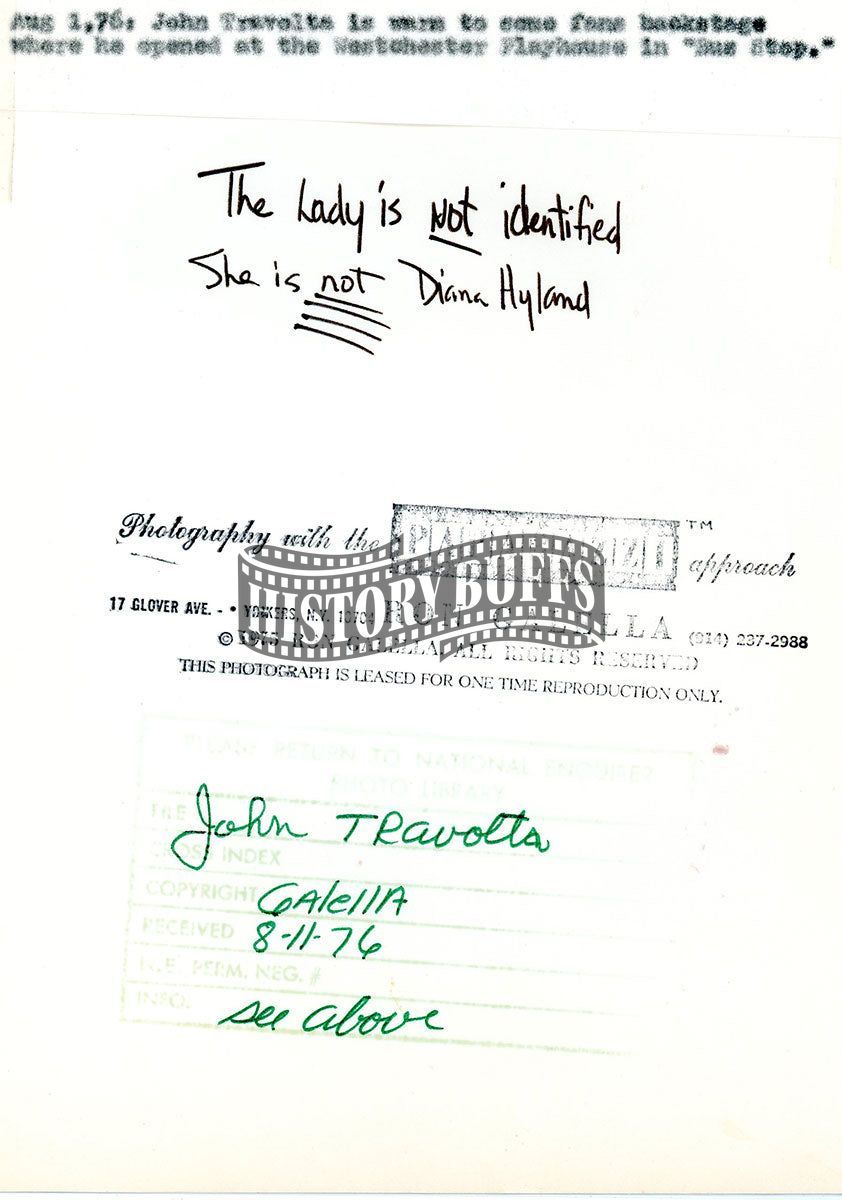 Aug 1,76: John Travolta is warm to some fans backstage
where he opened at the Westchester Playhouse in "Bus Stop."
The Lady is not identified
She is not Diana Hyland
Photography with the PAPARAZZI ™ approach
HISTORY BUFFS
17 GLOVER AVE. - • YONKERS, N.Y. 10704 RON GALELLA (914) 237-2988
© 1975 RON GALELLA, ALL RIGHTS RESERVED
THIS PHOTOGRAPH IS LEASED FOR ONE TIME REPRODUCTION ONLY.
PLEASE RETURN TO NATIONAL ENQUIRER
PHOTO LIBRARY
FILE John Travolta
CROSS INDEX
COPYRIGHT Galella
RECEIVED 8-11-76
N.E. PERM. NEG. #
INFO. see above